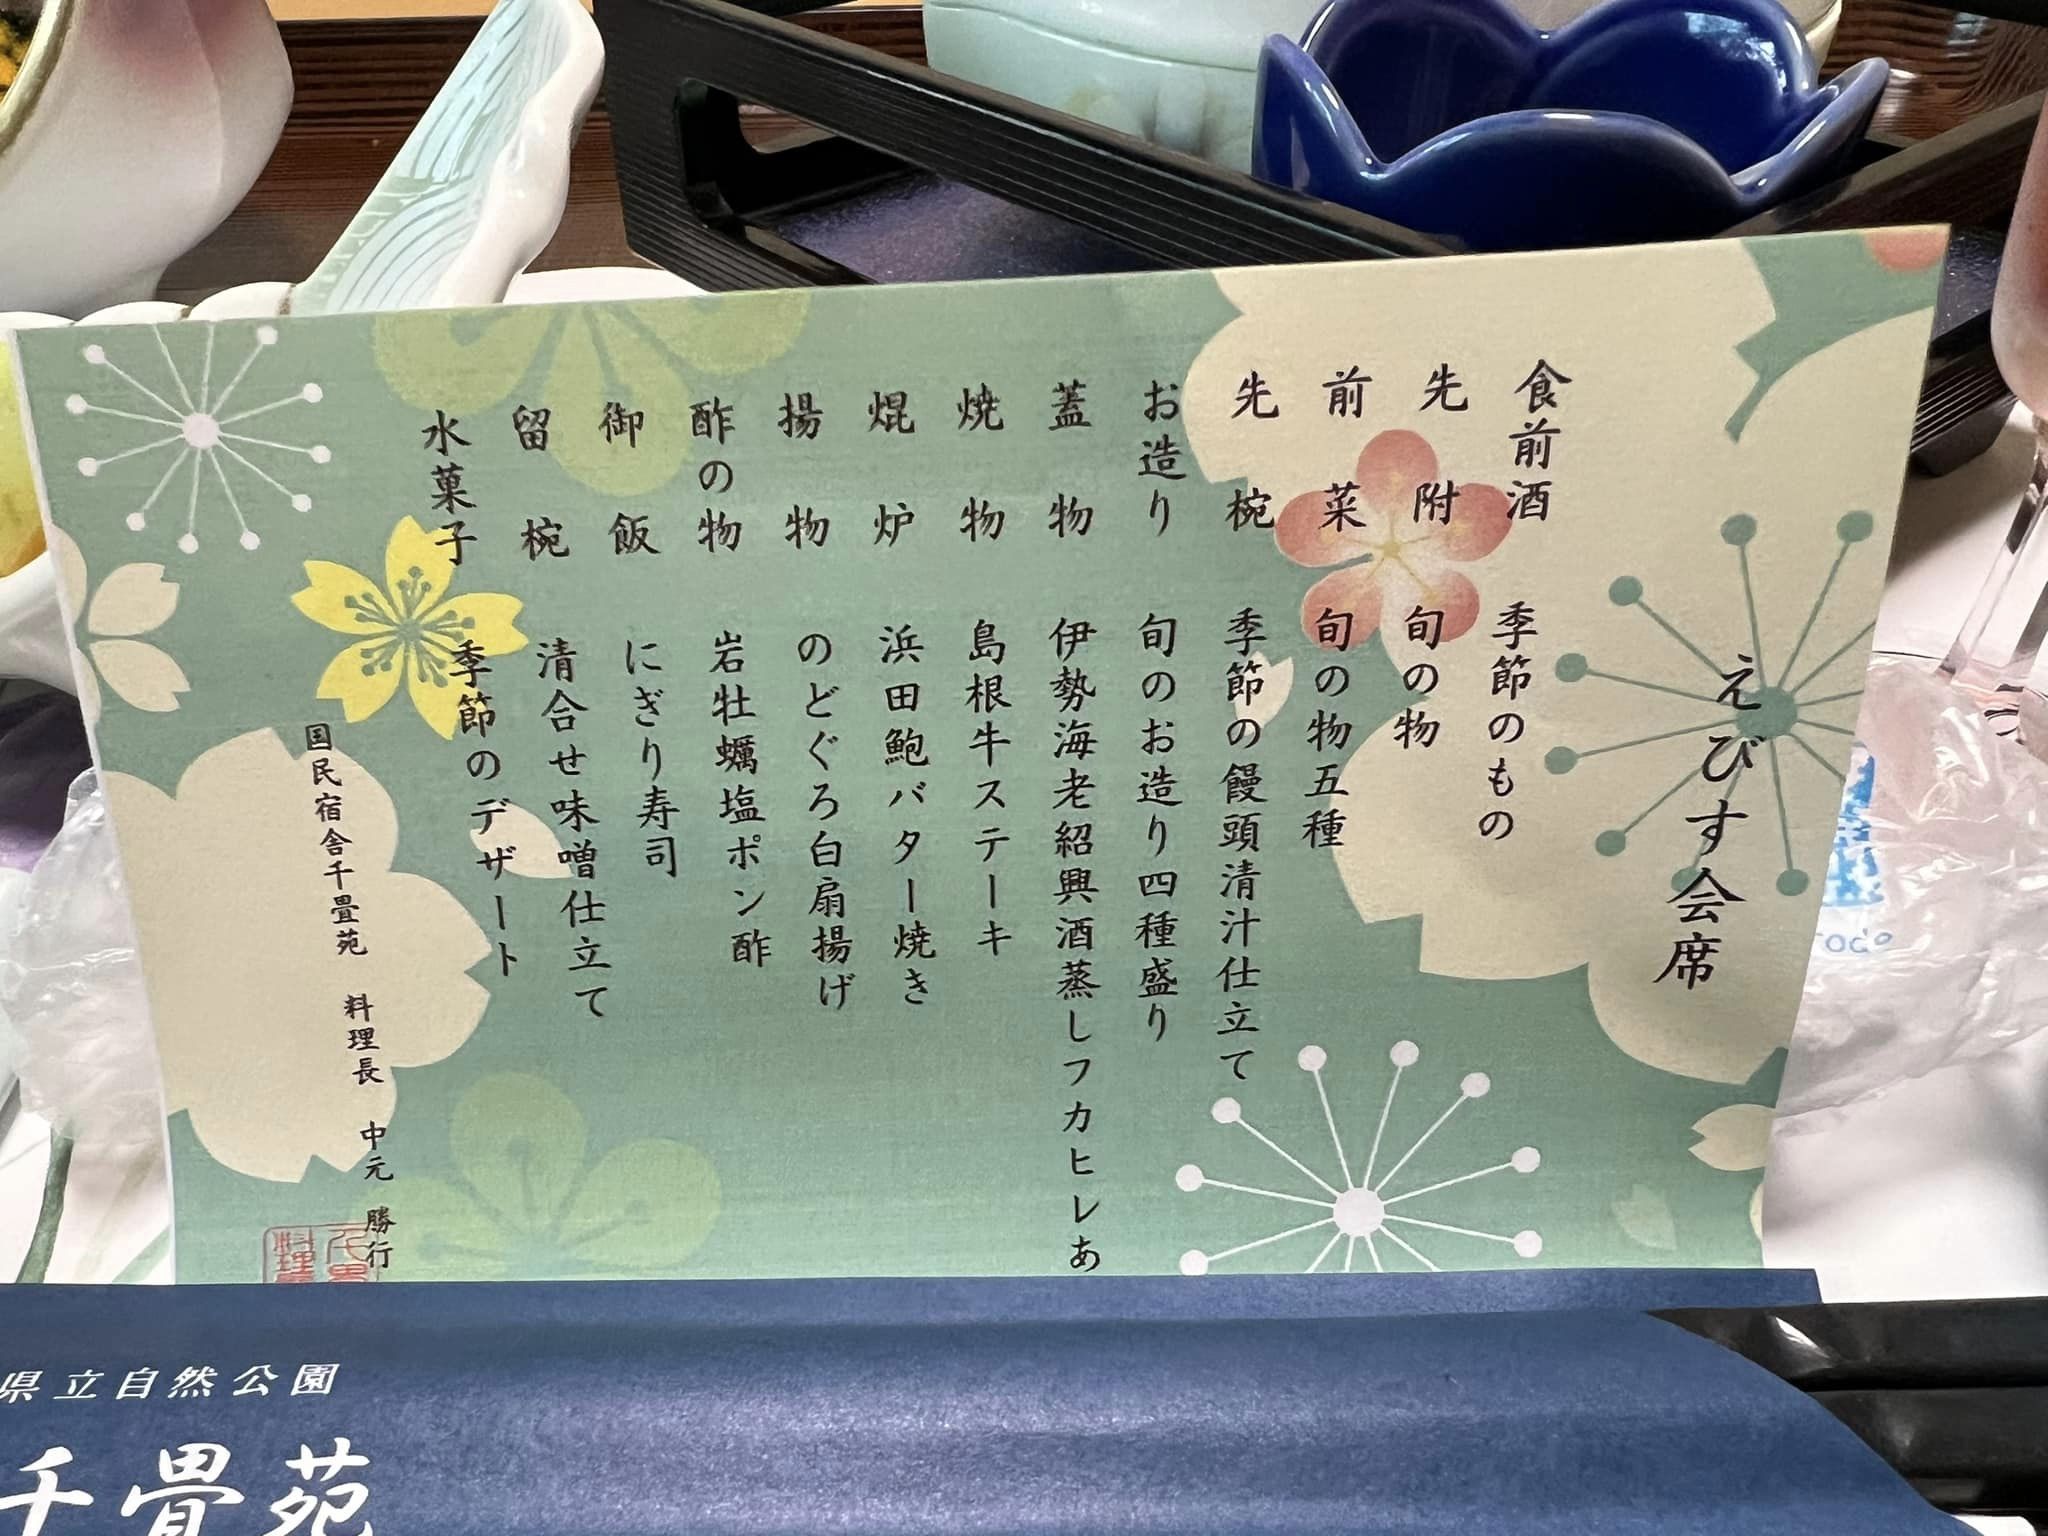 えびす会席
食前酒 季節のもの
先附 旬の物
前菜 旬の物五種
先椀 季節の饅頭清汁仕立て
お造り 旬のお造り四種盛り
蓋物 伊勢海老紹興酒蒸しフカヒレあ
焼物 島根牛ステーキ
焜炉 浜田鮑バター焼き
揚物 のどぐろ白扇揚げ
酢の物 岩牡蠣塩ポン酢
御飯 にぎり寿司
留椀 清合せ味噌仕立て
水菓子 季節のデザート
国民宿舎千畳苑 料理長 中元 勝行
県立自然公園
千畳苑